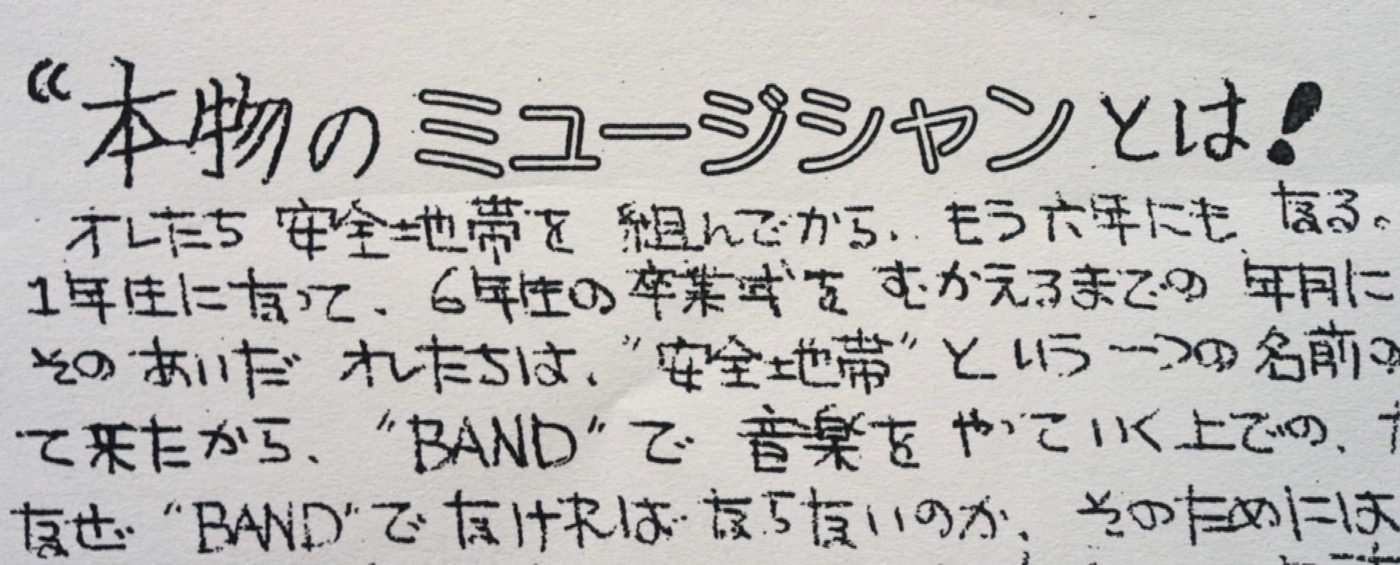 “本物のミュージシャンとは!
オレたち 安全地帯を 組んでから、もう六年にも なる。
1年生になって、6年生の卒業式を むかえるまでの 年月に
その あいだ オレたちは、“安全地帯” という 一つの 名前の
て来たから、“BAND” で 音楽を やって いく 上での、
なぜ “BAND” で なければ ならないのか、そのためには